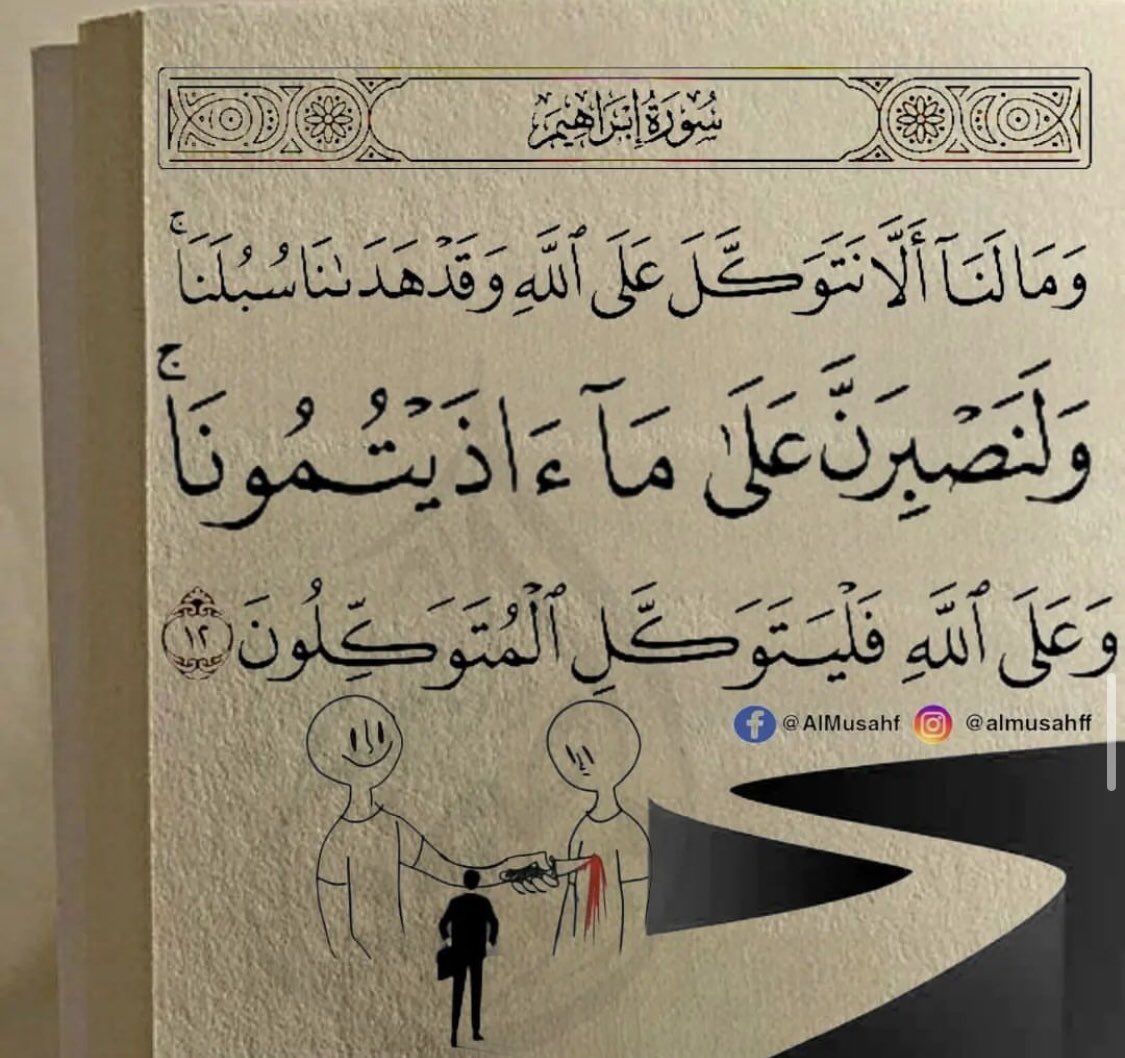 سُورَةُ إِبۡرَاهِيمَ
وَمَا لَنَآ أَلَّا نَتَوَكَّلَ عَلَى ٱللَّهِ وَقَدۡ هَدَىٰنَا سُبُلَنَاۚ
وَلَنَصۡبِرَنَّ عَلَىٰ مَآ ءَاذَيۡتُمُونَاۚ
وَعَلَى ٱللَّهِ فَلۡيَتَوَكَّلِ ٱلۡمُتَوَكِّلُونَ ١٢
@AlMusahf @almusahff